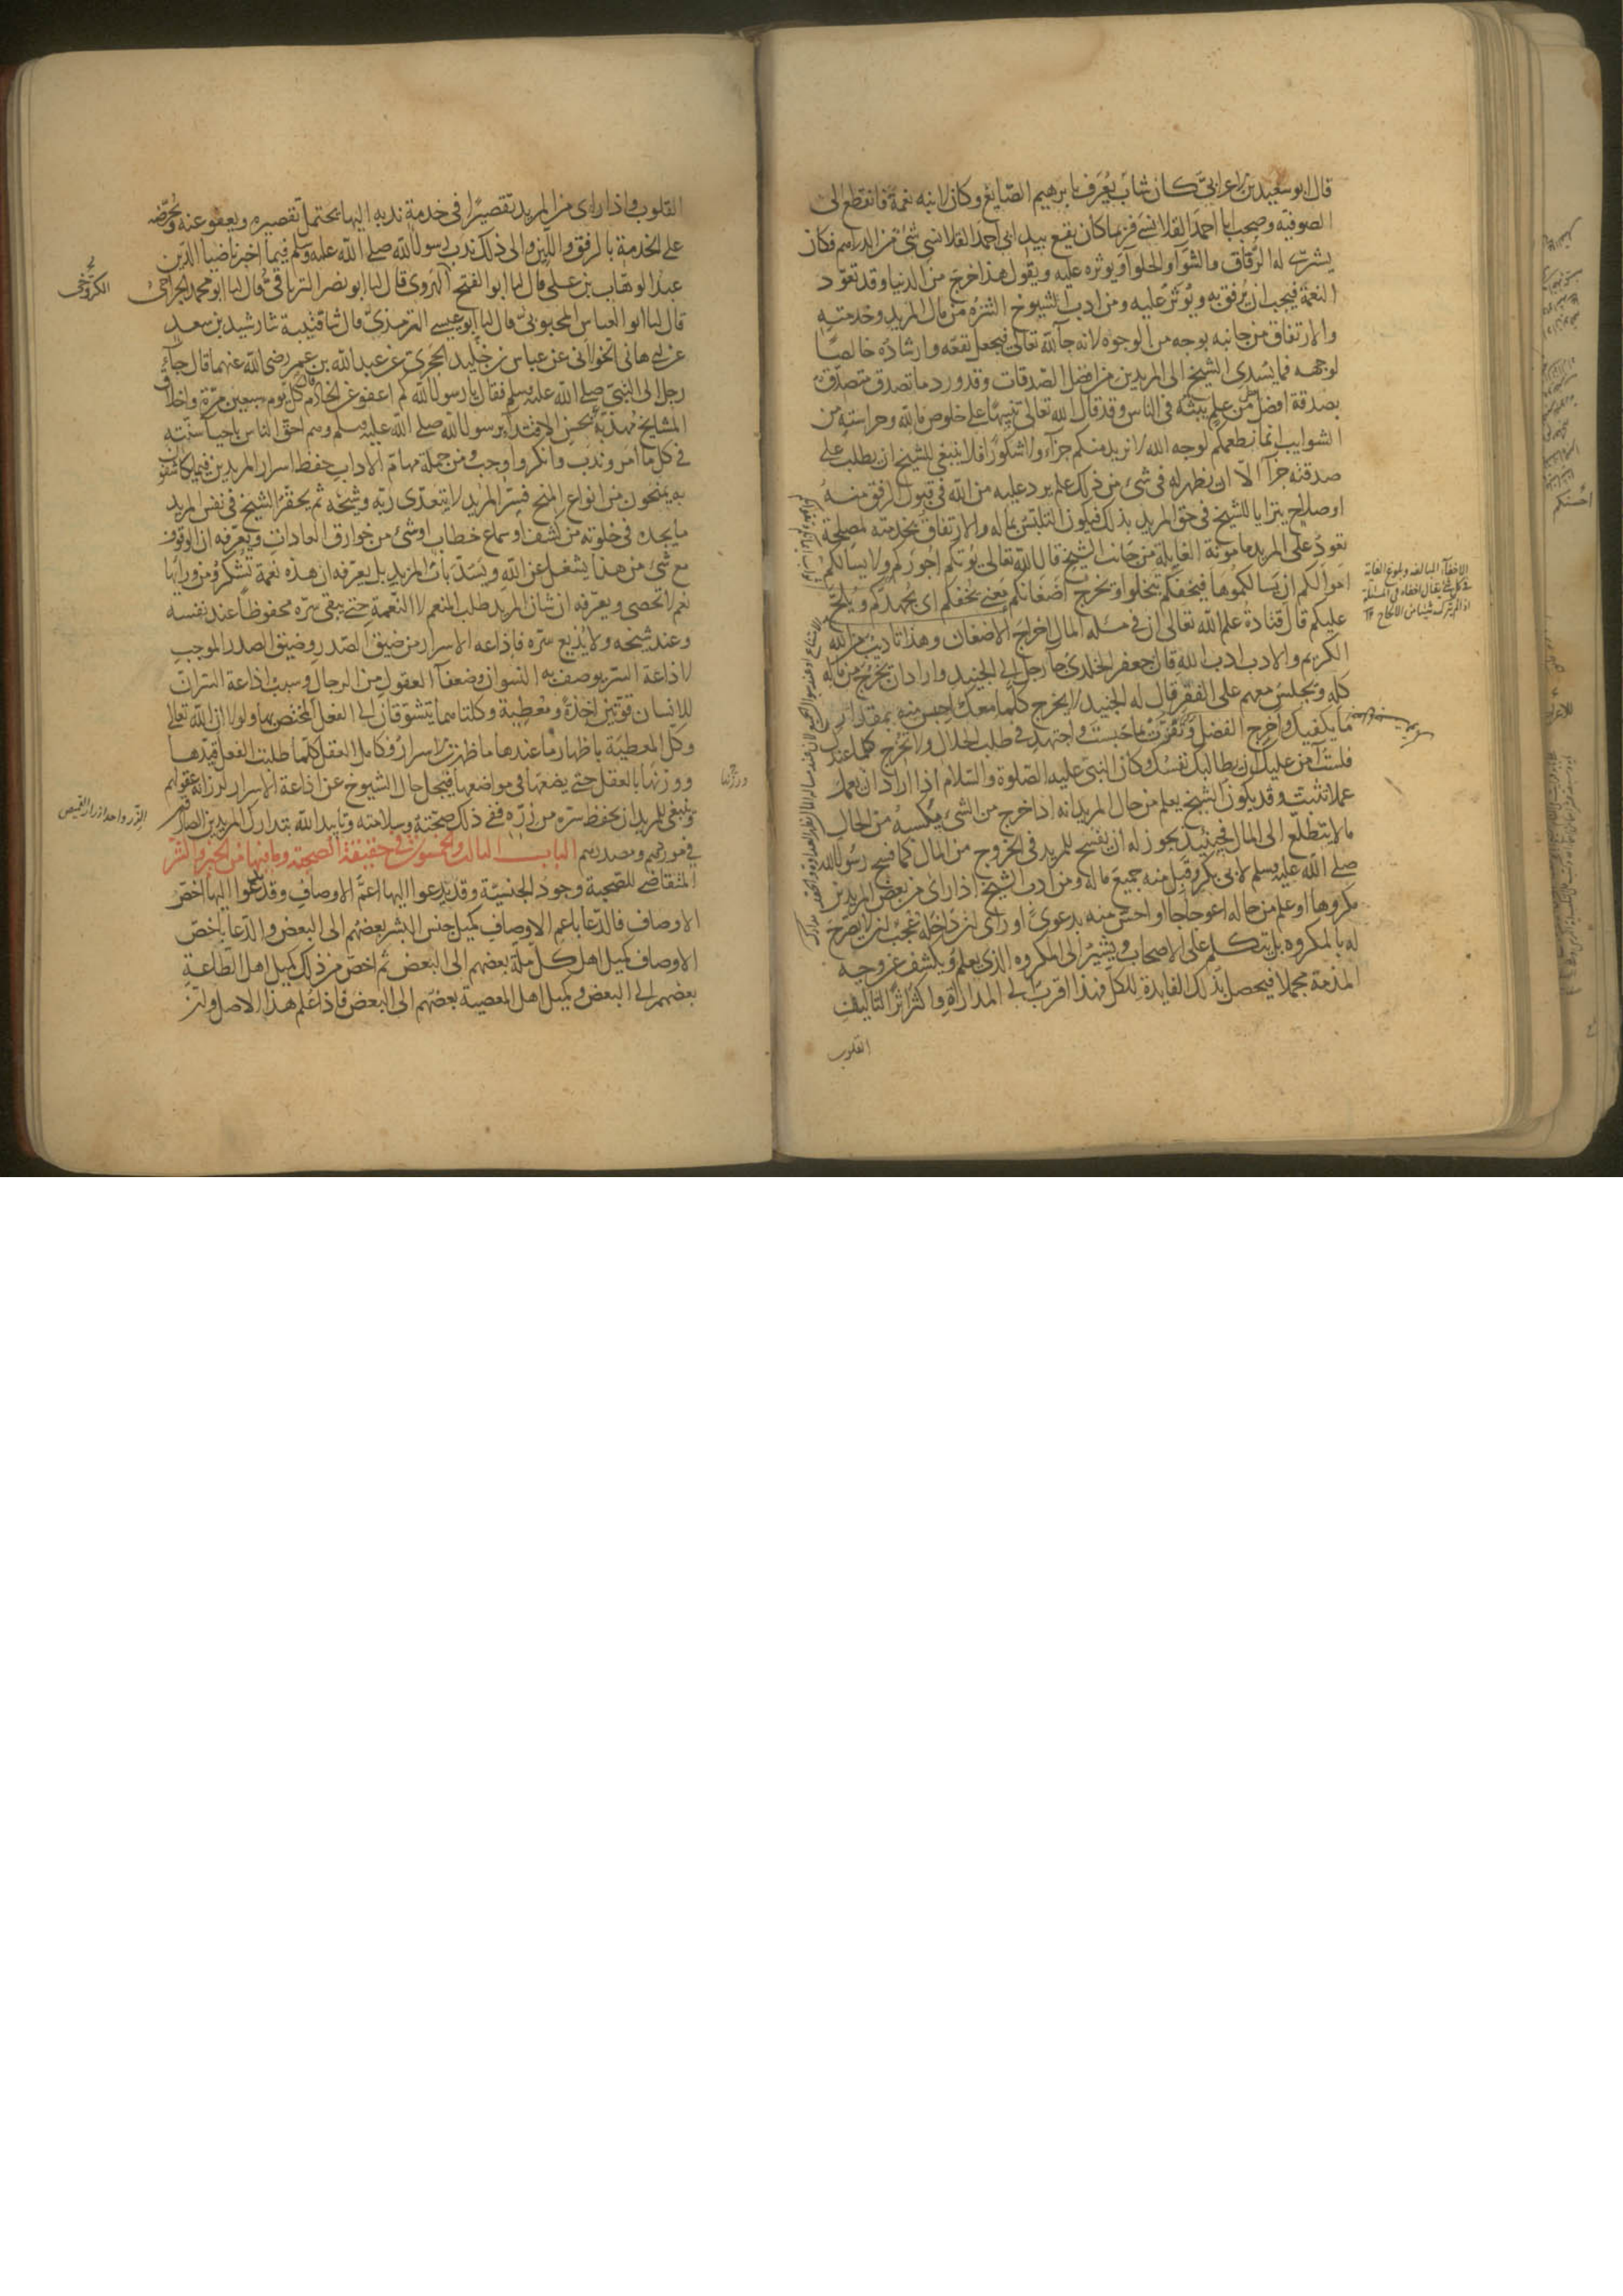 قال ابو سعيد بن الاعرابي كان شاب يعرف بابرهيم الصايغ وكان لابيه نعمة فانقطع الى
الصوفية وصحب ابا احمد القلانسي فربما كان يقع بيد ابي احمد القلانسي شئ من الدراهم فكان
يشتري له الرقاق والشوا والحلوا ويوثره عليه ويقول هذا خرج من الدنيا وقد تعود
النعمة فيجب ان يرفق به ويوثر عليه ومن ادب الشيوخ التنزه من مال المريد وخدمته
والارتفاق من جانبه بوجه من الوجوه لانه جآ لله تعالى فيجعل نفعه وارشاده خالصا
لوجهه فما يسدى الشيخ الى المريدين من افضل الصدقات وقد ورد ما تصدق متصدق
بصدقة افضل من علم يبثه في الناس وقد قال الله تعالى تنبيها على خلوص ما لله وحراسته من
الشوايب انما نطعمكم لوجه الله لا نريد منكم جزآء ولا شكورا فلا ينبغي للشيخ ان يطلب على
صدقته جزآ الا ان يظهر له في شئ من ذلك علم يرد عليه من الله في قبول الرفق منه
او صلاح يترايا للشيخ في حق المريد بذلك فيكون التلبس بماله والارتفاق بخدمته لمصلحة
تعود على المريد مامونة الغايلة من جانب الشيخ قال الله تعالى يوتكم اجوركم ولا يسالكم
اموالكم ان يسالكموها فيحفكم تبخلوا وتخرج اضغانكم يعني يحفكم اي يجهدكم ويلح
عليكم قال قتادة علم الله تعالى ان في مسله المال اخراج الاضغان وهذا تاديب من الله
الكريم والادب ادب الله قال جعفر الخلدي جآ رجل الى الجنيد واراد ان يخرج من ماله
كله ويجلس معهم على الفقر فقال له الجنيد لا تخرج كلما معك احبس منه بمقدار
ما يكفيك واخرج الفضل وتقوت بما حبست واجتهد في طلب الحلال ولا تخرج كلما عندك
فلست آمن عليك ان يطالبك نفسك وكان النبي عليه الصلوة والسلام اذا اراد ان يعمل
عملا تثبت وقد يكون الشيخ يعلم من حال المريد انه اذا خرج من الشئ يكسبه من الحال
ما لا يتطلع الى المال فحينئذ يجوز له ان يفسح للمريد في الخروج من المال كما فسح رسول الله
صلى الله عليه وسلم لابي بكر وقبل منه جميع ماله ومن ادب الشيخ اذا راى من بعض المريدين
مكروها او علم من حاله اعوجاجا او احس منه بدعوى او راى انه داخله عجب ان لا يصرح
له بالمكروه بل يتكلم على الاصحاب ويشير الى المكروه الذي يعلم ويكشف عن وجه
المذمة مجملا فيحصل بذلك الفايدة للكل فهذا اقرب الى المداراة واكثر اثر التاليف
القلوب
الاحفآء المبالغة وبلوغ الغاية
في كل شئ يقال احفاه في المسئلة
اذا لم يترك شيئا من الالحاح
القلوب واذا راى من المريد تقصيرا في خدمة ندبه اليها يحتمل تقصيره ويعفو عنه ويحرضه
على الخدمة بالرفق واللين والى ذلك ندب رسول الله صلى الله عليه وسلم فيما اخبرنا ضيا الدين
عبد الوهاب بن علي قال انا ابو الفتح الهروي قال انا ابو نصر الترياقي قال انا ابو محمد الجراحي
قال انا ابو العباس المحبوبي قال انا ابو عيسى الترمذي قال ثنا قتيبة ثنا رشيد بن سعد
عن ابي هاني الخولاني عن عباس بن خليد الحجري عن عبد الله بن عمر رضي الله عنهما قال جآء
رجل الى النبي صلى الله عليه وسلم فقال يا رسول الله كم اعفو عن الخادم قال كل يوم سبعين مرة واخلاق
المشايخ مهذبة بحسن الاقتدآ برسول الله صلى الله عليه وسلم وهم احق الناس باحيآ سنته
في كل ما امر وندب وانكر واوجب ومن جملة مهام الاداب حفظ اسرار المريدين فيما يكاشفون
به ويمنحون من انواع المنح فسر المريد لا يتعدى ربه وشيخه ثم يحقر الشيخ في نفس المريد
ما يجده في خلوته من كشف او سماع خطاب او شئ من خوارق العادات ويعرفه ان الوقوف
مع شئ من هذا يشغل عن الله ويسد باب المزيد بل يعرفه ان هذه نعمة تشكر ومن ورآئها
نعم لا تحصى ويعرفه ان شان المريد طلب المنعم لا النعمة حتى يبقى سره محفوظا عند نفسه
وعند شيخه ولا يذيع سره فاذاعة الاسرار من ضيق الصدر وضيق الصدر الموجب
لاذاعة السر يوصف به النسوان وضعفآ العقول من الرجال وسبب اذاعة السر ان
للانسان قوتين آخذة ومعطية وكلتاهما يتشوقان الى الفعل المختص بها ولولا ان الله تعالى
وكل المعطية باظهار ما عندها ما ظهرت الاسرار فكامل العقل كلما طلبت الفعل قيدها
ووزنها بالعقل حتى يضعها في مواضعها فيجل حال الشيوخ عن اذاعة الاسرار لرزانة عقولهم
وينبغي للمريد ان يحفظ سره من زره ففي ذلك صحته وسلامته وتاييد الله بتدارك المريدين الصادقين
في موردهم ومصدرهم الباب الثالث والخمسون في حقيقة الصحبة وما فيها من الخير والشر
المتقاضي للصحبة وجود الجنسية وقد يدعوا اليها اعم الاوصاف وقد يدعوا اليها اخص
الاوصاف فالدعا باعم الاوصاف كميل جنس البشر بعضهم الى البعض والدعا باخص
الاوصاف كميل اهل كل ملة بعضهم الى البعض ثم اخص من ذلك كميل اهل الطاعة
بعضهم الى البعض وكميل اهل المعصية بعضهم الى البعض فاذا علم هذا الاصل وان
الكروخي
الزر واحد ازرار القميص